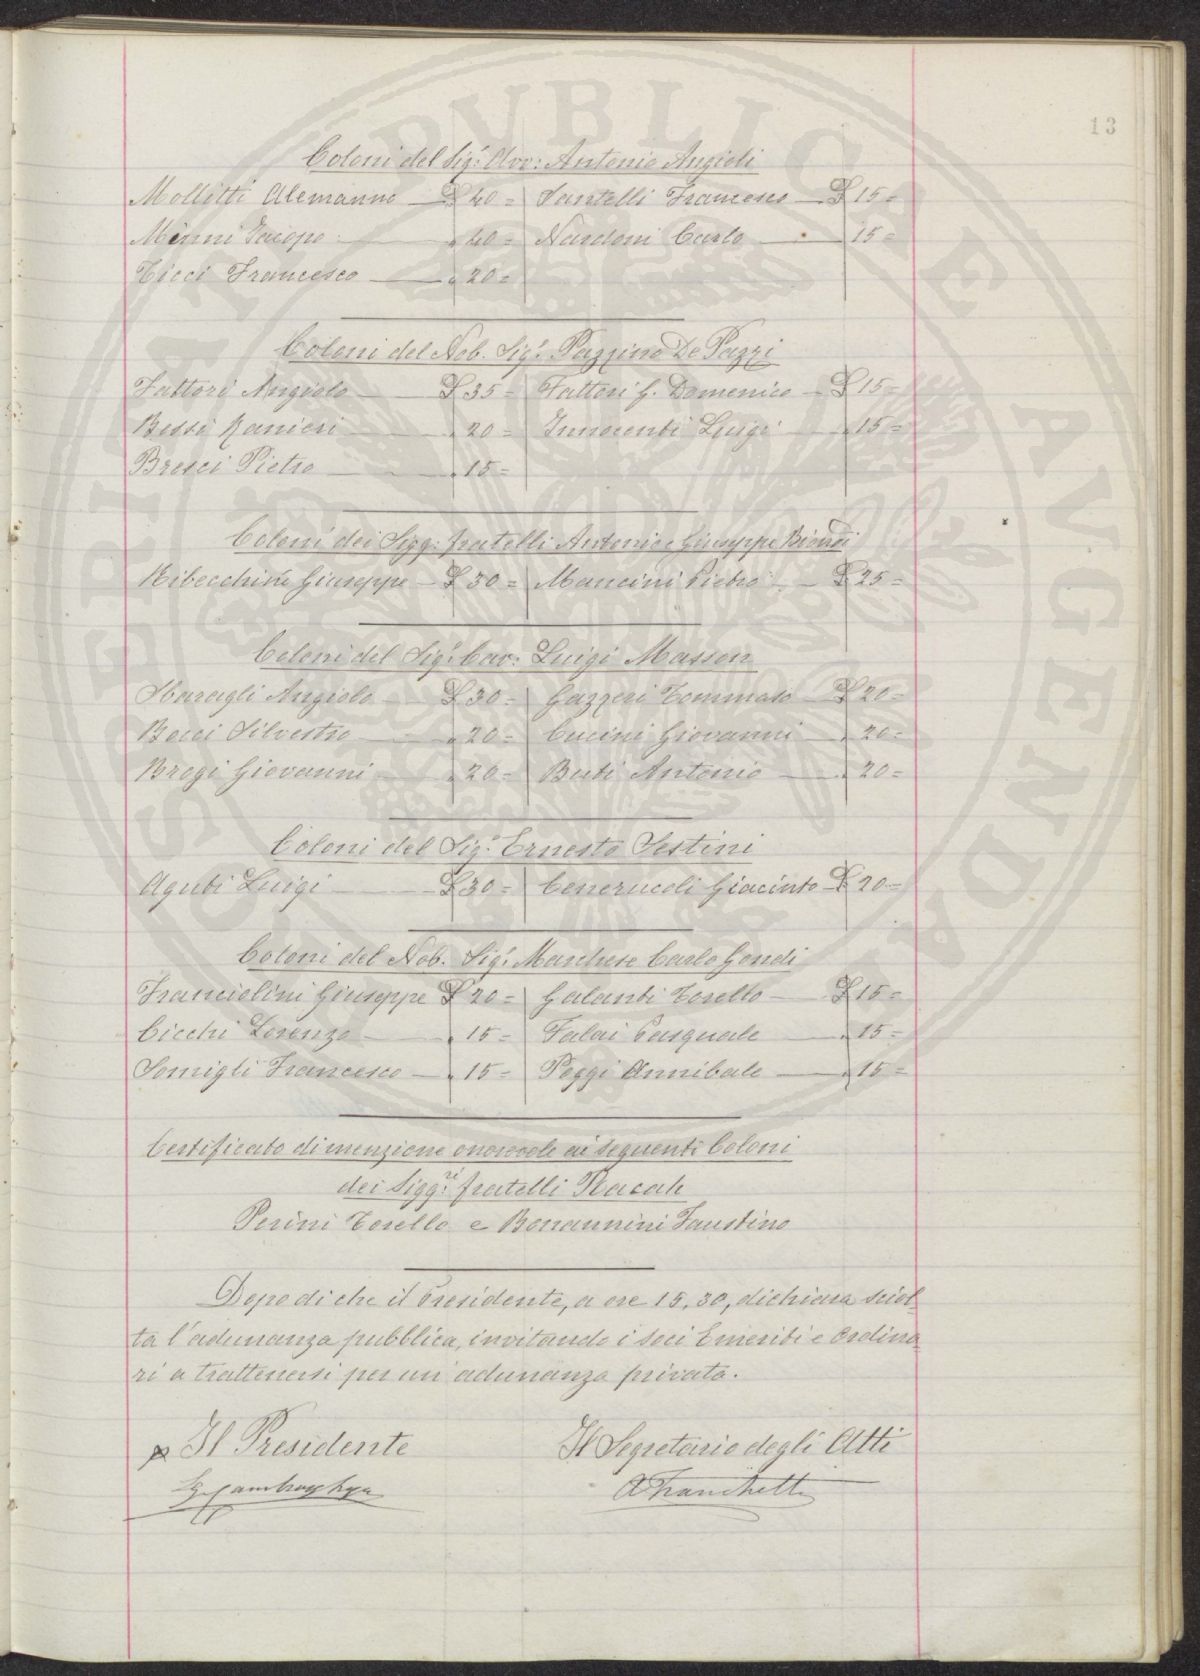 13
Coloni del Sig.r Avv: Antonio Angioli
Mollitti Alemanno — £ 40 = Santelli Francesco — £ 15 =
Minni Jacopo — „ 40 = Nardoni Carlo — 15 =
Ticci Francesco — „ 20 =
Coloni del Nob. Sig.r Pazzino De Pazzi
Fattori Angiolo — £ 35 = Fattori G. Domenico — £ 15 =
Bessi Ranieri — „ 20 = Innocenti Luigi — „ 15 =
Bresci Pietro — „ 15 =
Coloni dei Sigg.i fratelli Antonio e Giuseppe Biondi
Ribecchini Giuseppe — £ 30 = Mancini Pietro — £ 25 =
Coloni del Sig.r Cav: Luigi Masson
Sbaragli Angiolo — £ 30 = Gazzeri Tommaso — £ 20 =
Bocci Silvestro — „ 20 = Cucini Giovanni — „ 20 =
Brogi Giovanni — „ 20 = Buti Antonio — „ 20 =
Coloni del Sig.r Ernesto Sestini
Aguti Luigi — £ 30 = Cenerucoli Giacinto — £ 20 =
Coloni del Nob. Sig.r Marchese Carlo Gondi
Franciolini Giuseppe £ 20 = Galanti Torello — £ 15 =
Cicchi Lorenzo — „ 15 = Falai Pasquale — „ 15 =
Somigli Francesco — „ 15 = Poggi Annibale — „ 15 =
Certificato di menzione onorevole ai seguenti Coloni
dei Sigg.ri fratelli Racah
Perini Torello e Bonannini Faustino
Dopo di che il Presidente, a ore 15,30, dichiara sciol-
ta l'adunanza pubblica, invitando i soci Emeriti e Ordina-
ri a trattenersi per un'adunanza privata.
Il Presidente Il Segretario degli Atti
A Franchetti